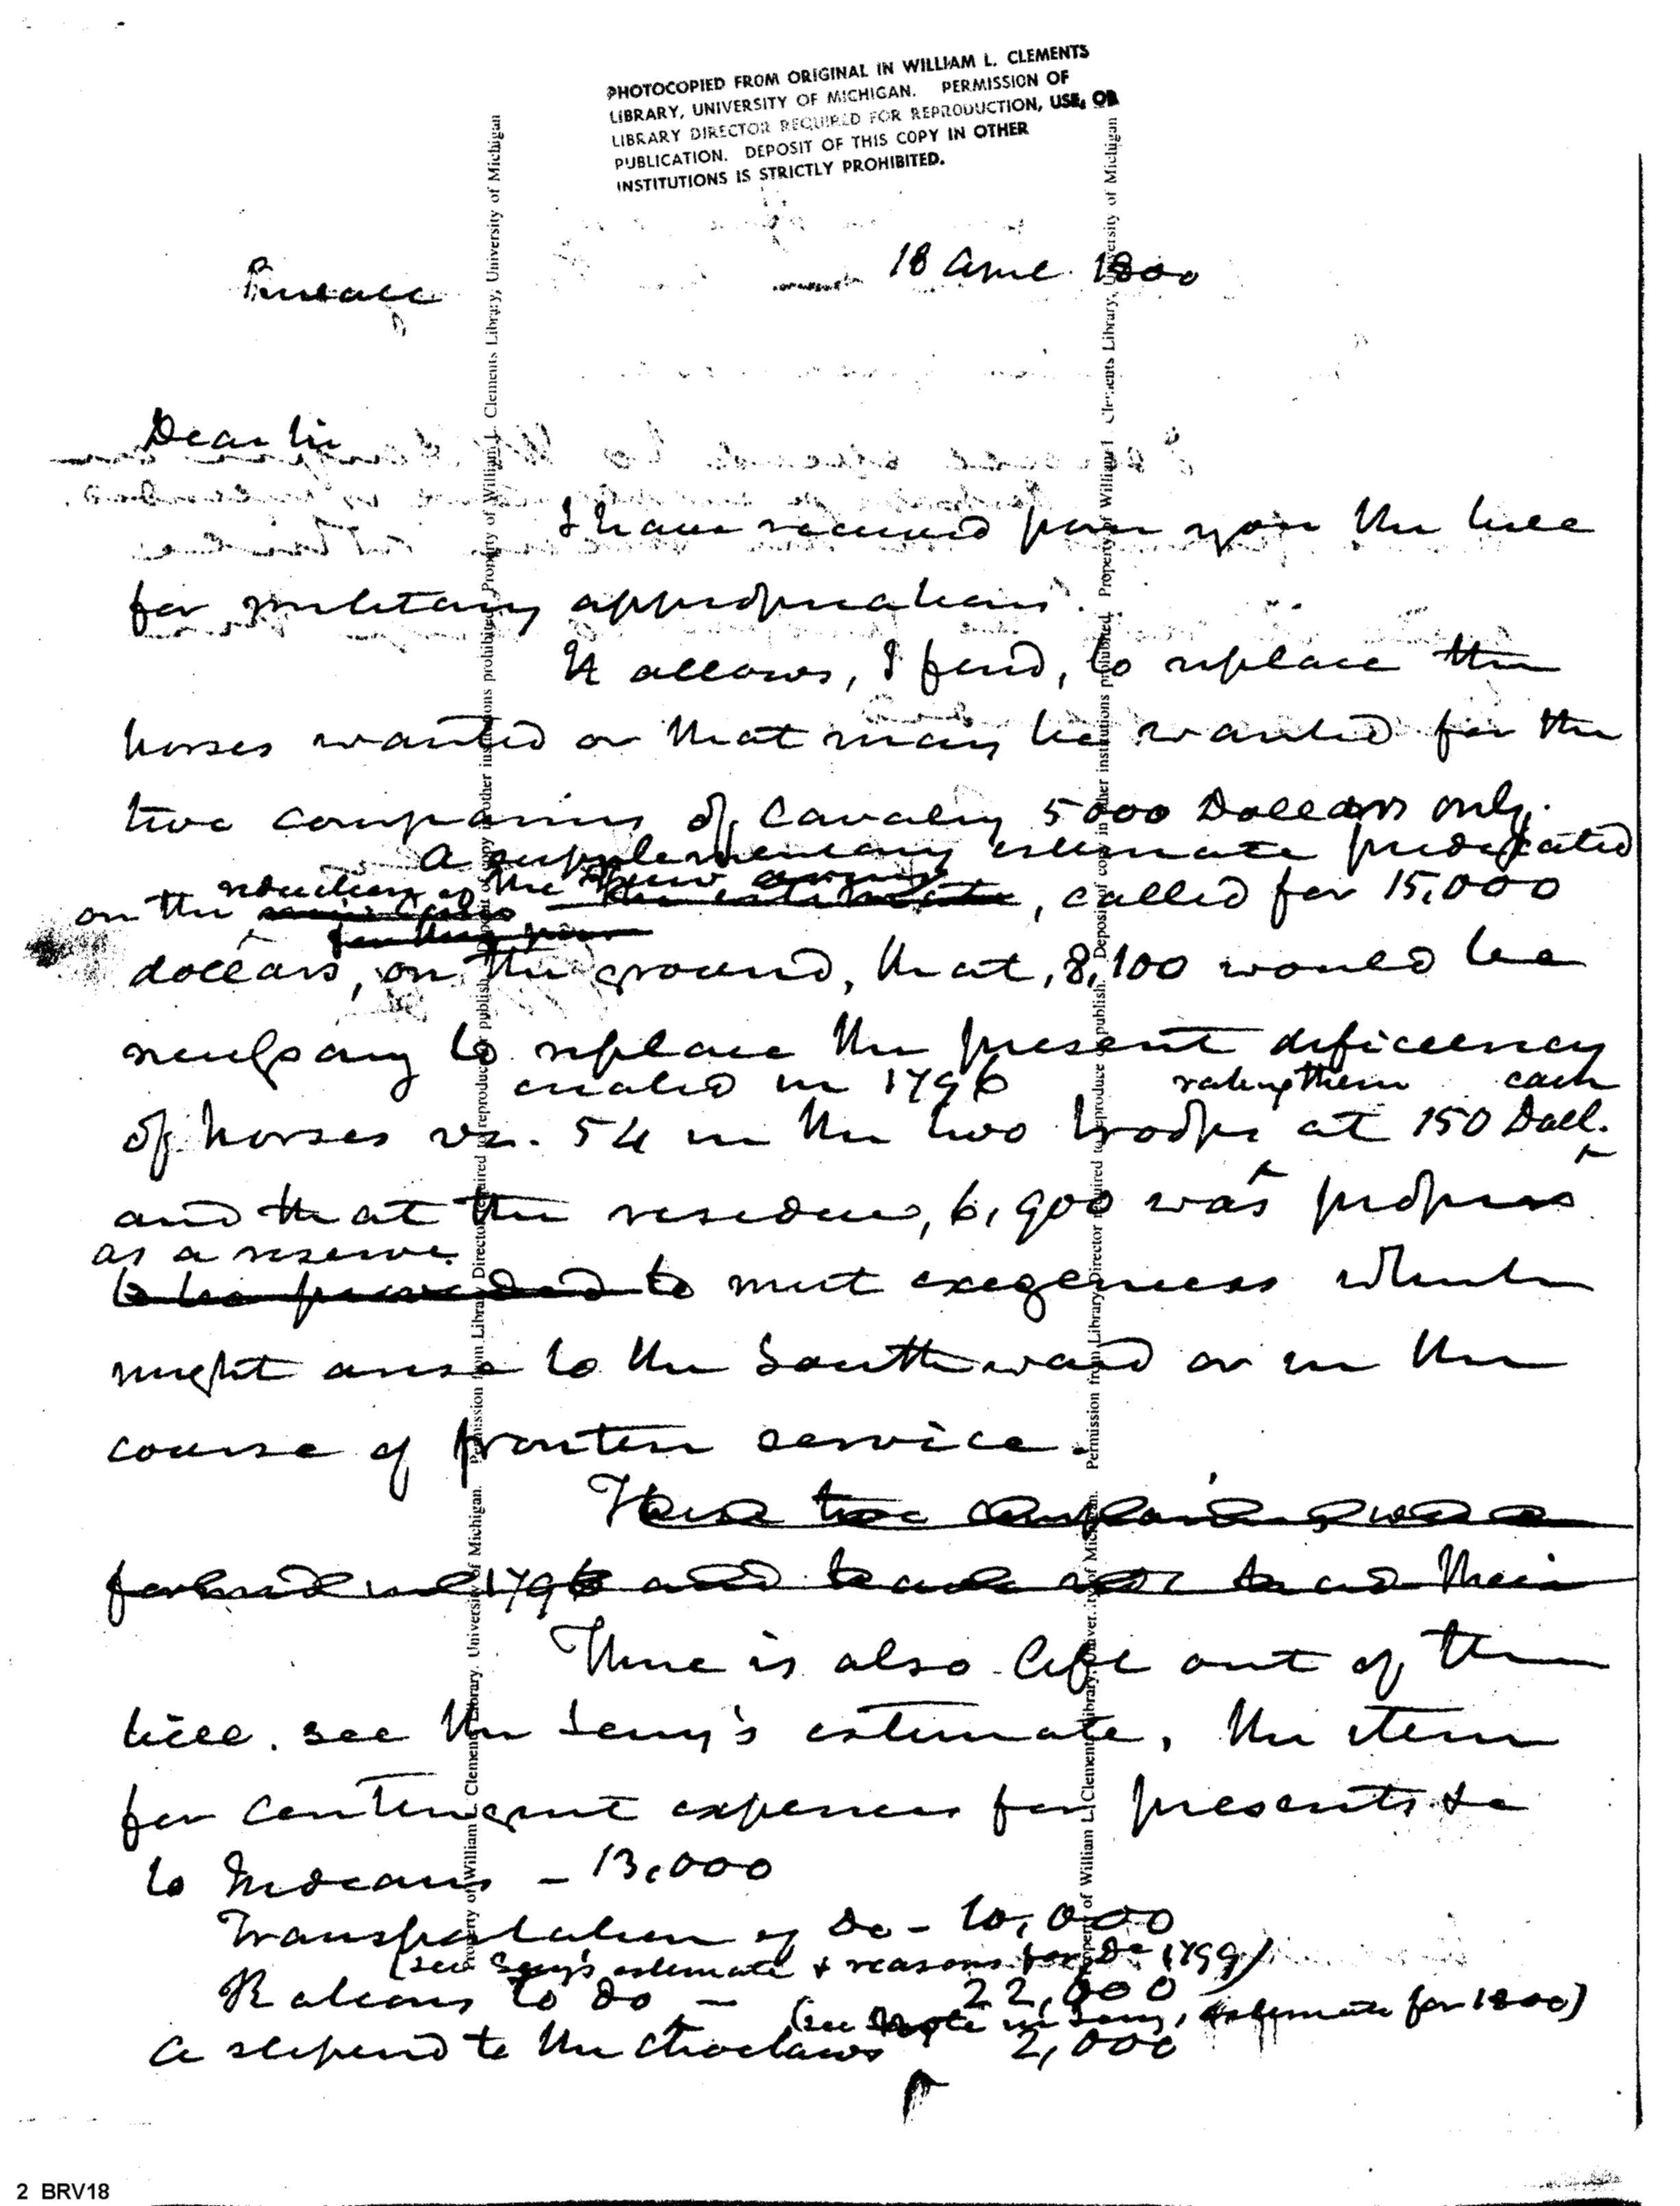 PHOTOCOPIED FROM ORIGINAL IN WILLIAM L. CLEMENTS
LIBRARY, UNIVERSITY OF MICHIGAN. PERMISSION OF
LIBRARY DIRECTOR REQUIRED FOR REPRODUCTION, USE, OR
PUBLICATION. DEPOSIT OF THIS COPY IN OTHER
INSTITUTIONS IS STRICTLY PROHIBITED.
18 April 1800
Private
Dear Sir
I have received from you the bill
for military appropriations.
It allows, I find, to replace the
horses wanted or that may be wanted for the
two companies of Cavalry 5000 Dollars only.
A supplementary estimate predicated
reduction of the new army
on the the estimate, called for 15,000
for the year
dollars, on the ground, that, 8,100 would be
necessary to replace the present deficiency
created in 1796 rating them each
of horses vz. 54 in the two troops at 150 Doll.
and that the residue, 6,900 was proper
as a reserve
to be provided to meet exigencies which
might arise to the Southward or in the
course of frontier service.
These two companies were
formed in 1796 and their
There is also left out of the
bill. see the Secy's estimate, the item
for contingent expenses for presents &c
to Indians - 13,000
Transportation of Do - 10,000
(see Secy's estimate & reasons for Do 1799)
Rations to do - 22,000
(see Note in Secy, estimate for 1800)
A stipend to the Choctaws 2,000
Property of William L. Clements Library, University of Michigan. Permission from Library Director required to reproduce or publish. Deposit of copy in other institutions prohibited. Property of William L. Clements Library, University of Michigan
Property of William L. Clements Library, University of Michigan. Permission from Library Director required to reproduce or publish. Deposit of copy in other institutions prohibited. Property of William L. Clements Library, University of Michigan
2 BRV18